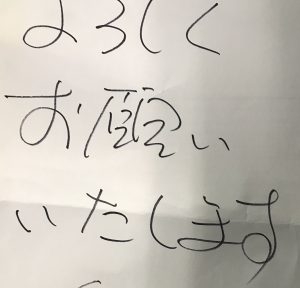 よろしく
お願い
いたします